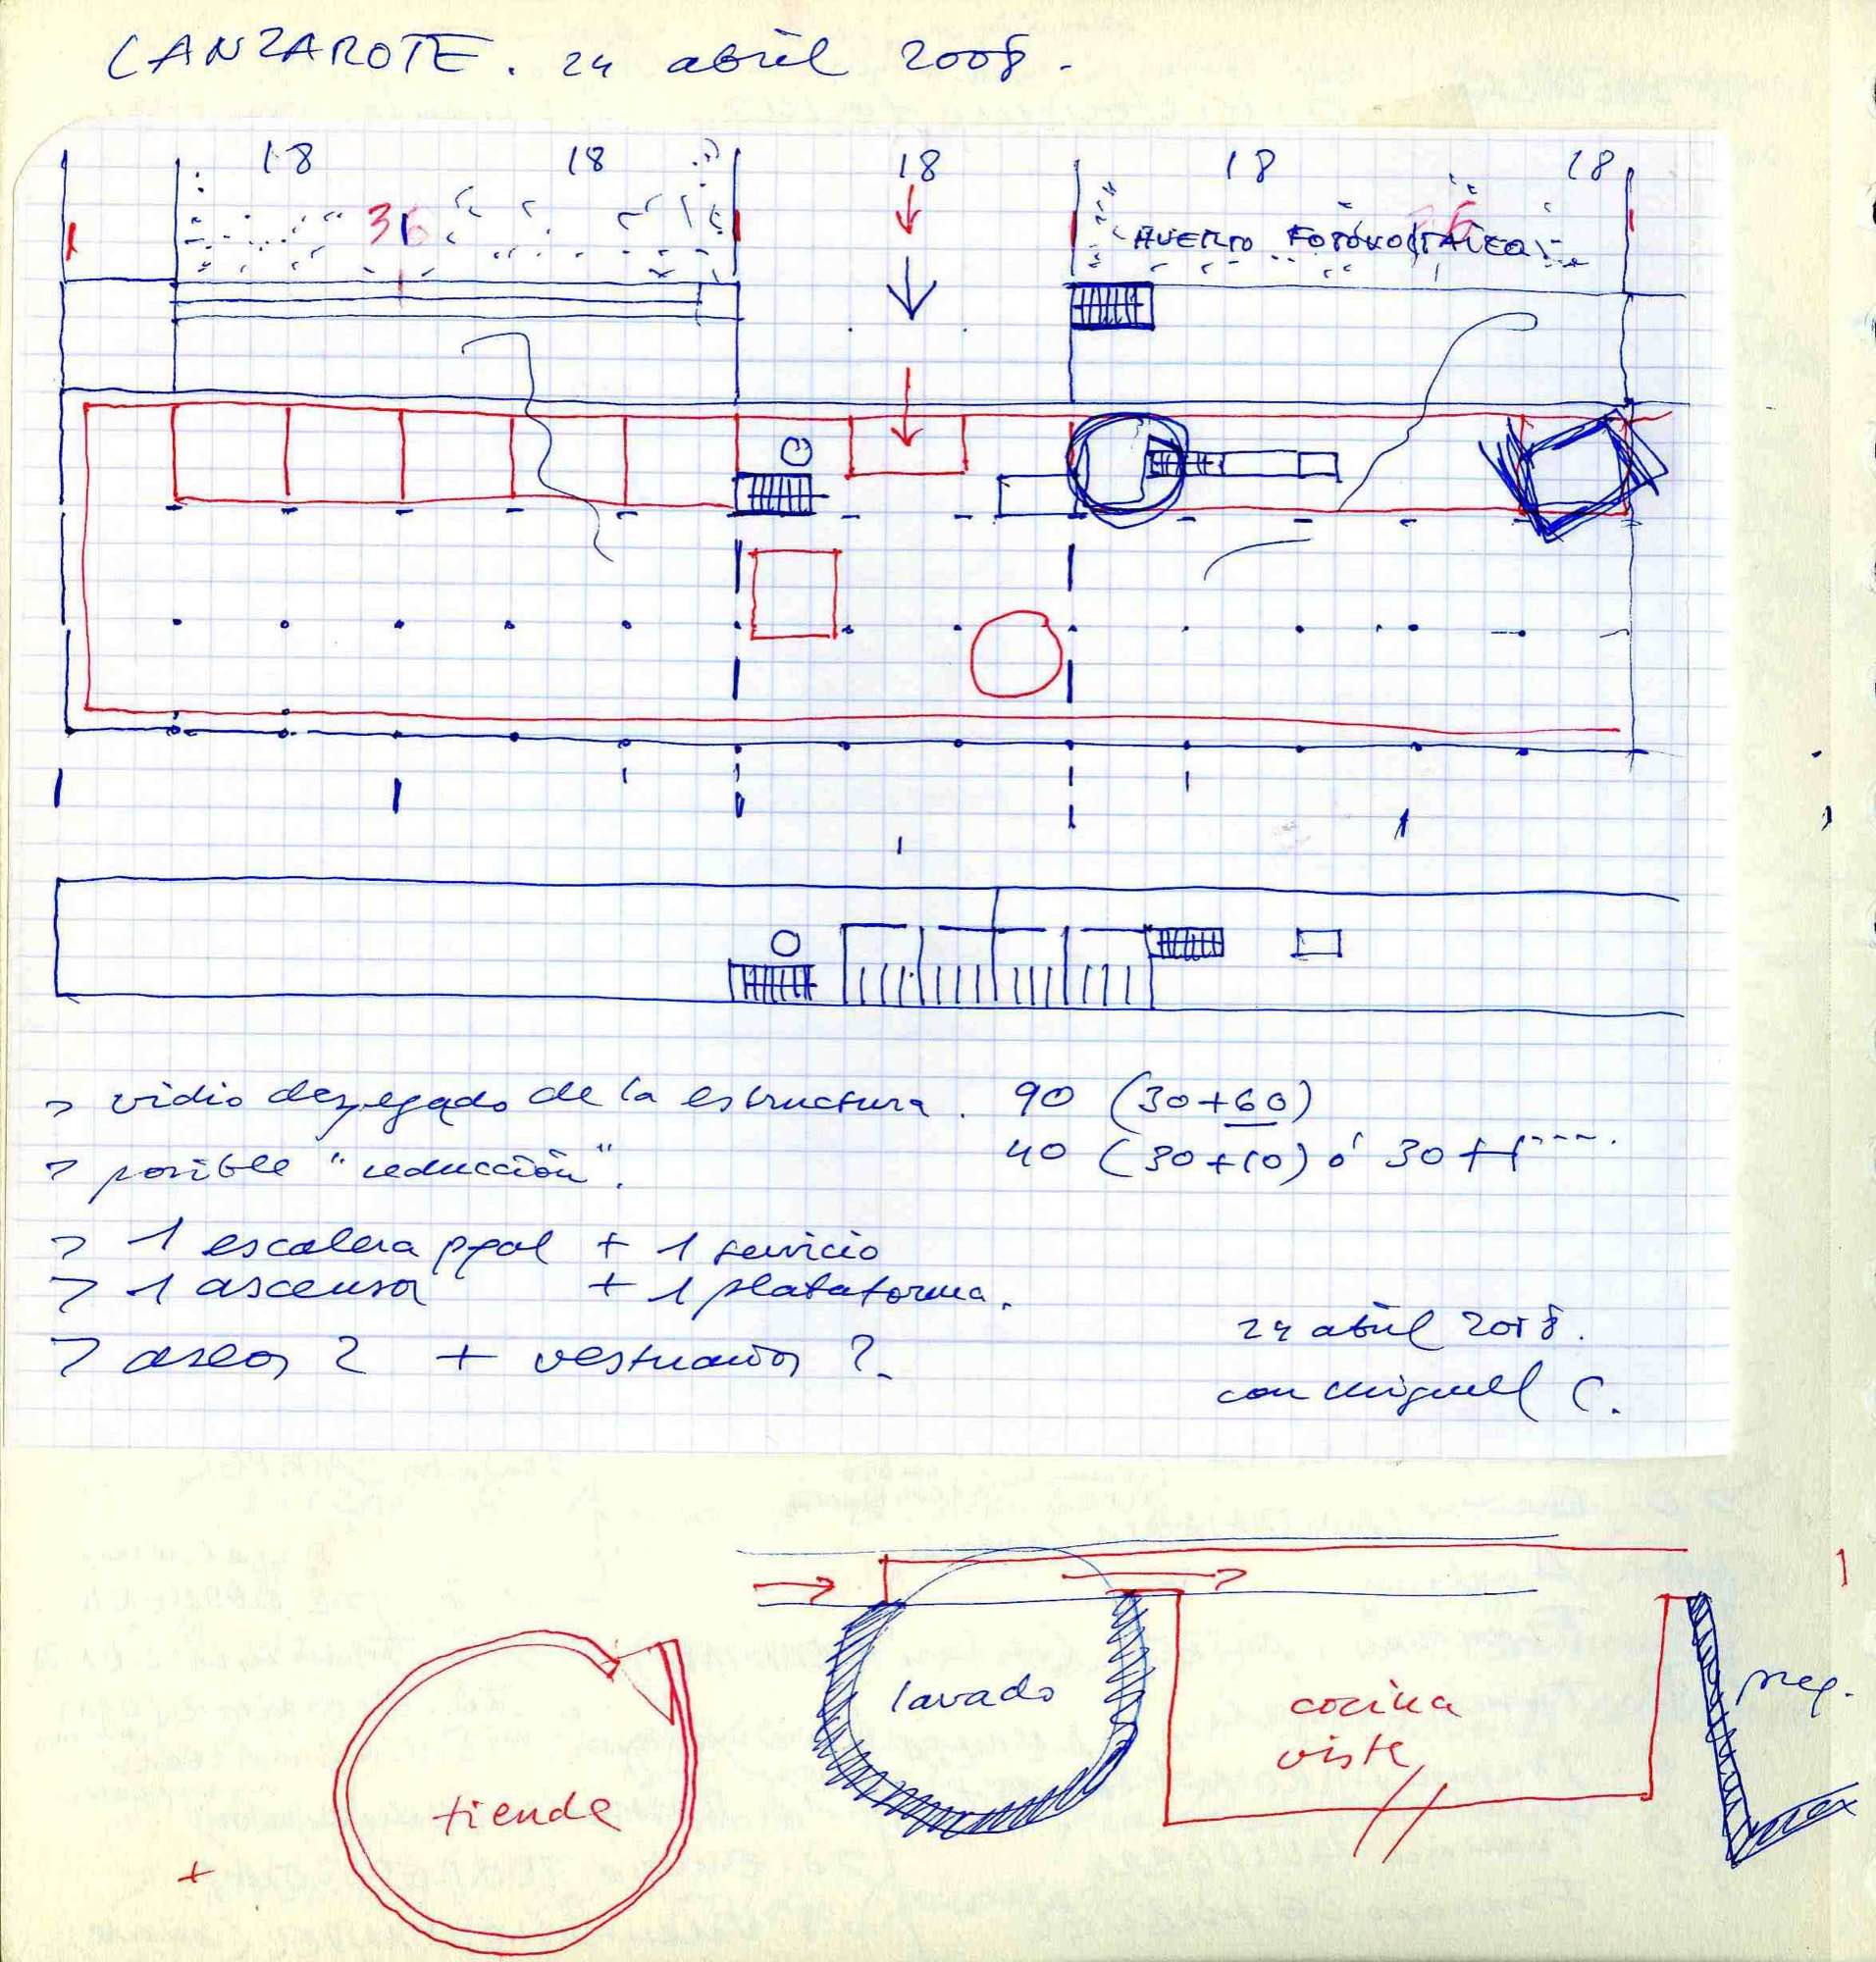 LANZAROTE. 24 abril 2008.
18 18 18 18 18
36 36
HUERTO FOTOVOLTAICO
> vidrio despegado de la estructura. 90 (30+60)
> posible "reducción". 40 (30+10) ó 30 + 1
> 1 escalera ppal + 1 servicio
> 1 ascensor + 1 plataforma.
> aseos 2 + vestuarios 2.
24 abril 2008.
con Miguel C.
lavado
prep.
cocina
vista
tienda